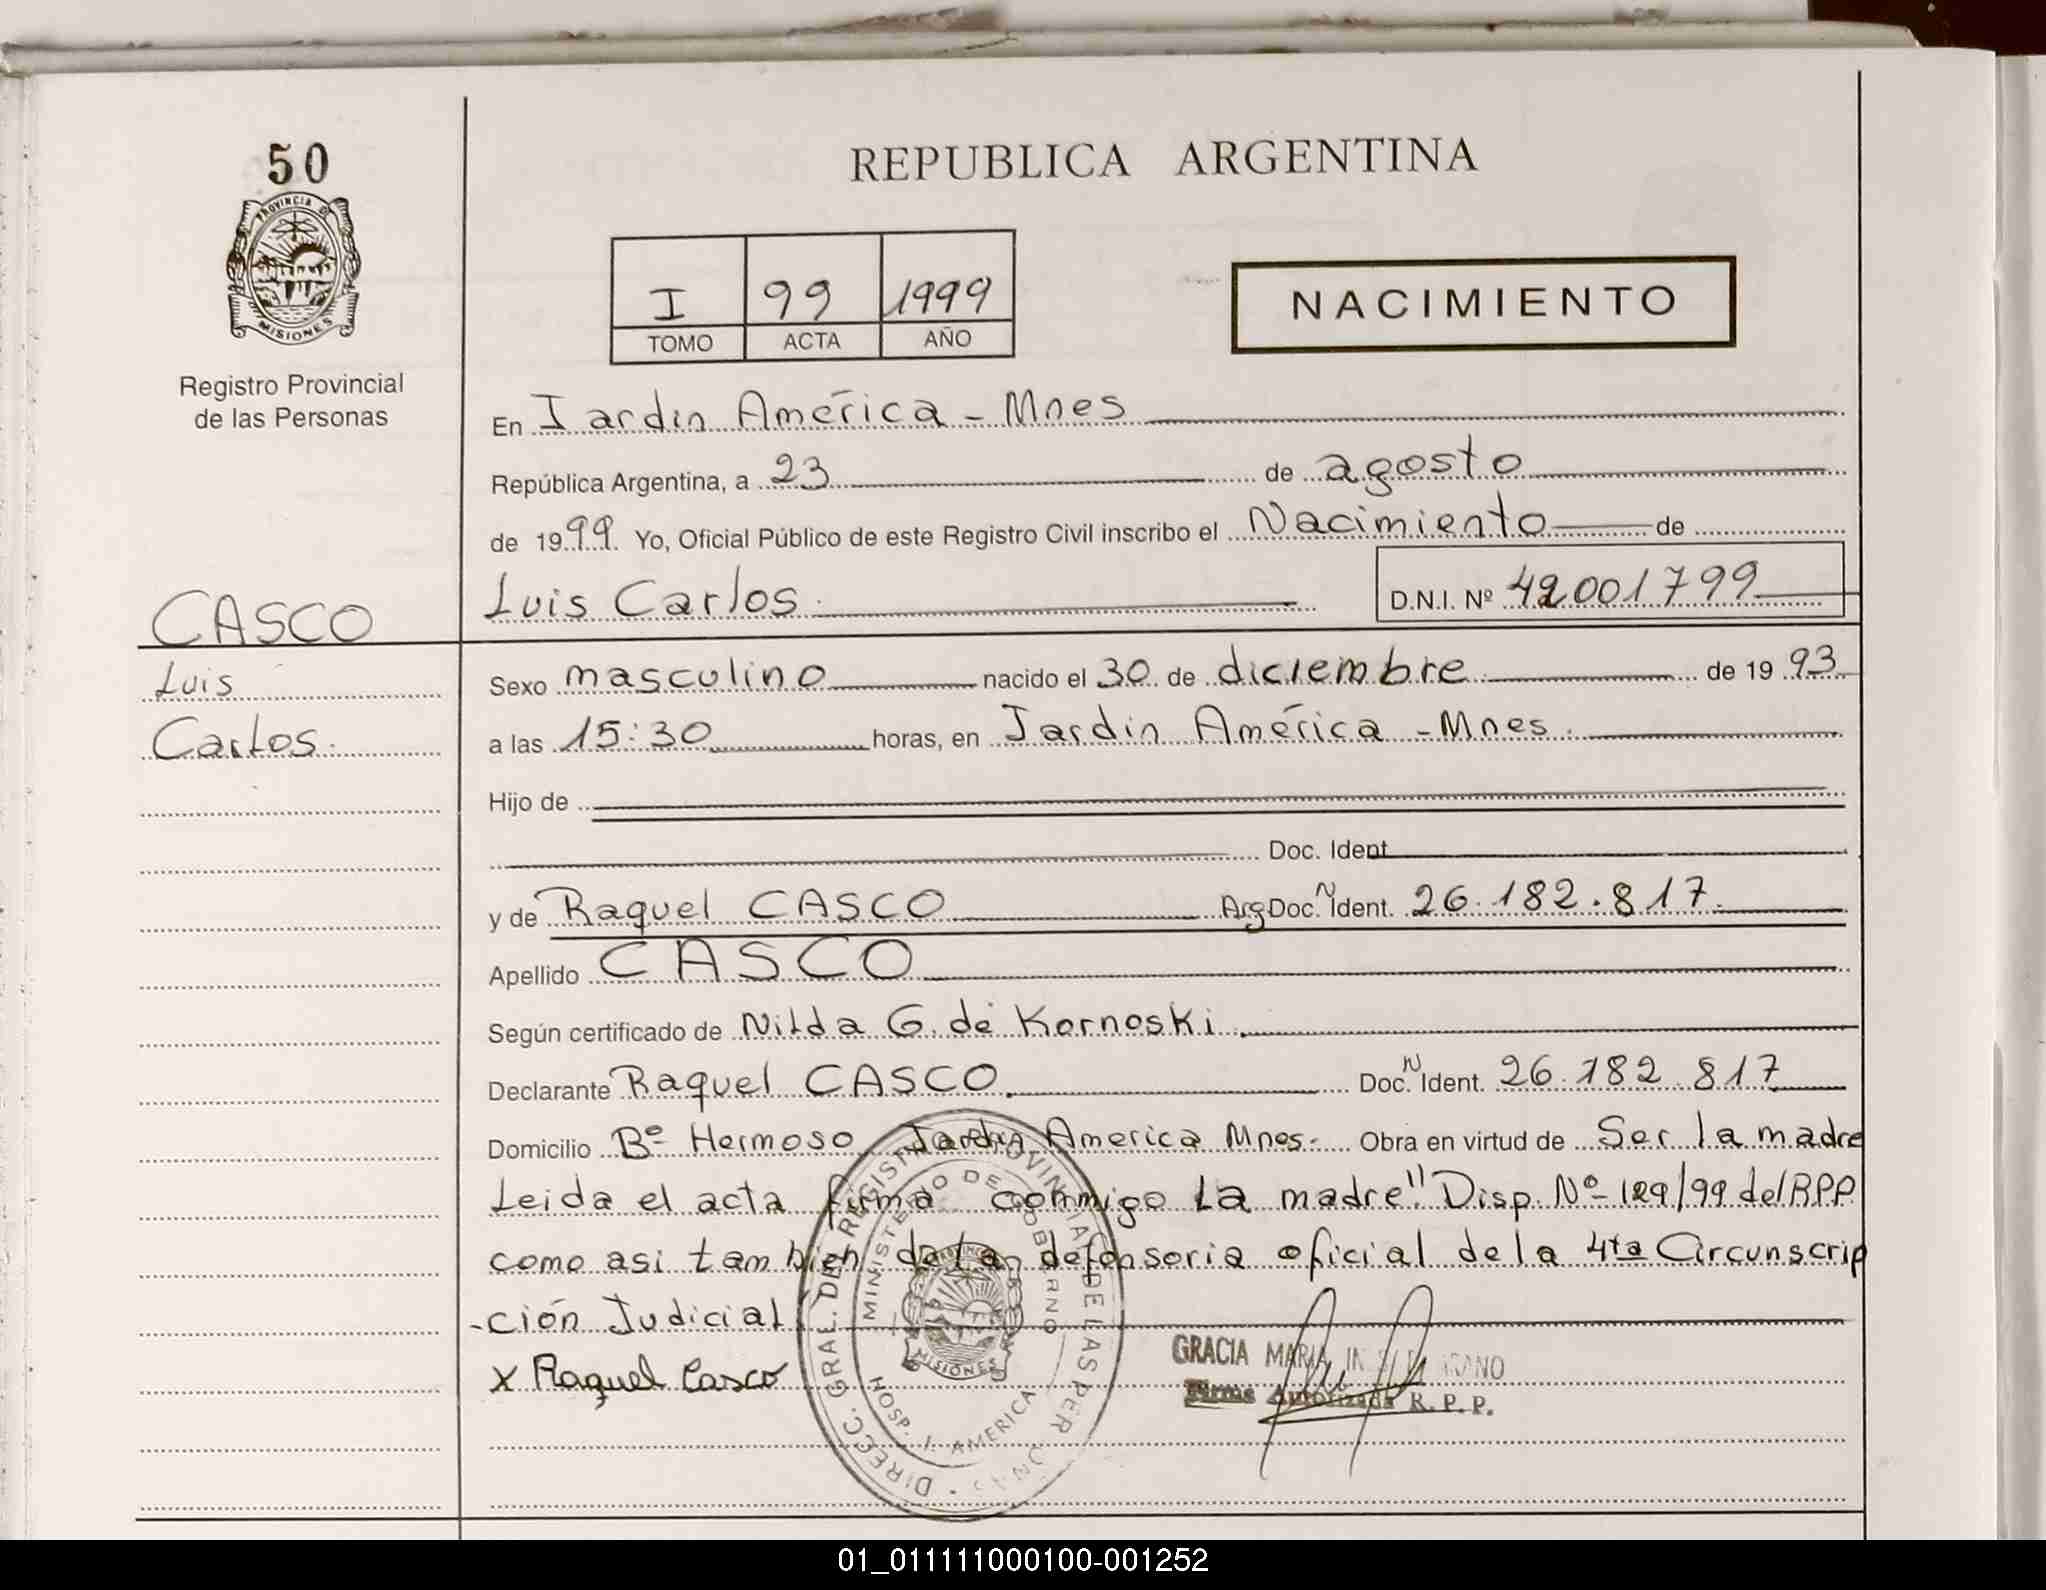 50
REPUBLICA ARGENTINA
PROVINCIA DE
MISIONES
I 99 1999
TOMO ACTA AÑO
NACIMIENTO
Registro Provincial
de las Personas
En Jardin América - Mnes
República Argentina, a 23 de agosto
de 1999 Yo, Oficial Público de este Registro Civil inscribo el Nacimiento de
Luis Carlos. D.N.I. Nº 42001799
CASCO
Luis
Carlos.
Sexo masculino nacido el 30 de diciembre de 1993
a las 15:30 horas, en Jardin América - Mnes.
Hijo de
Doc. Ident
y de Raquel CASCO Arg Doc. N Ident. 26.182.817.
Apellido CASCO
Según certificado de Nilda G. de Kornoski.
Declarante Raquel CASCO. Doc. N Ident. 26.182.817
Domicilio Bº Hermoso Jardin America Mnes. Obra en virtud de Ser la madre
Leida el acta firma conmigo La madre" Disp. Nº 129/99 del R.P.P.
como asi tambien de la defensoria oficial de la 4ta Circunscrip
-ción Judicial
x Raquel Casco
GRACIA MARIA
Firma Autorizada R. P. P.
DIRECC. GRAL. DEL REGISTRO PROVINCIAL DE LAS PER
MINISTERIO DE GOBIERNO
HOSP. J. AMERICA
MISIONES
01_011111000100-001252